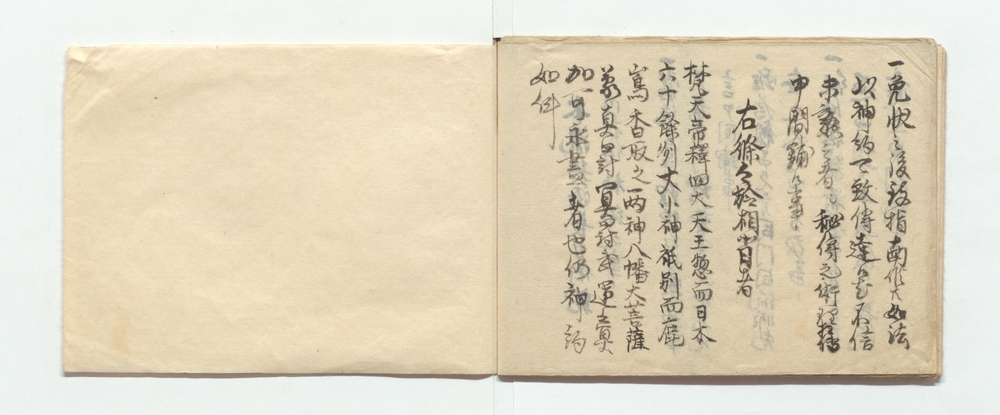 一免状之後致指南作大如法
以神約可致傳達若不信
未熟之者秘傳之術
中間
右條々於相背者
梵天帝釋四大天王惣而日本
六十餘列大小神祇別而鹿
嶌香取之両神八幡大菩薩
蒙真罰冥罰武運之冥
加可永盡者也仍神約
如件